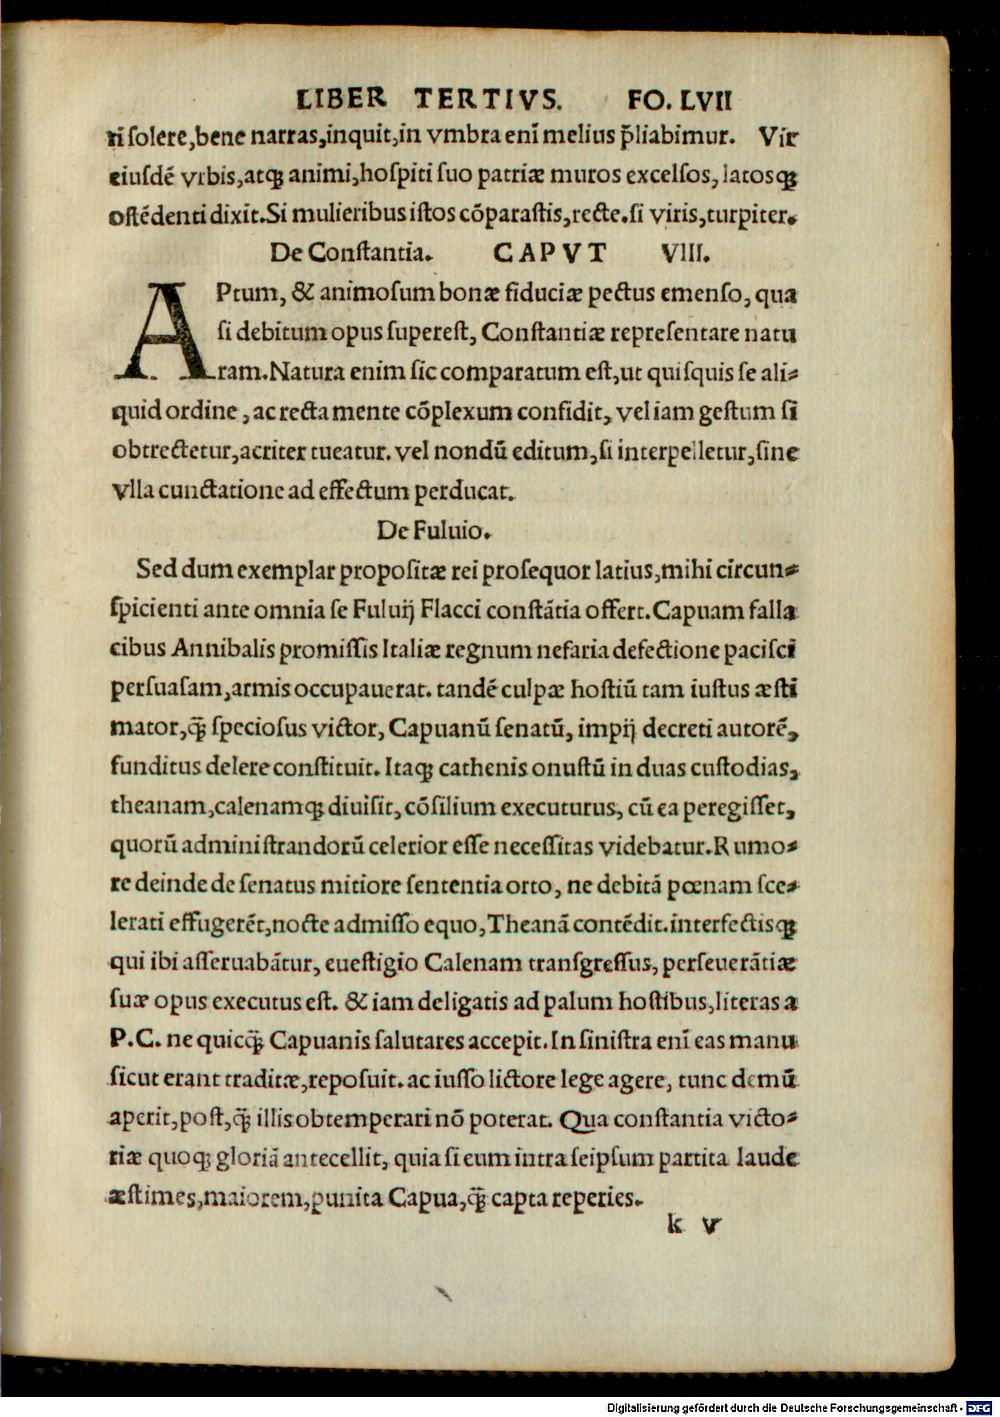 LIBER TERTIVS. FO. LVII
ri ſolere,bene narras,inquit,in vmbra enī melius p̄liabimur. Vir
eiuſdē vrbis,atqꝫ animi,hoſpiti ſuo patriæ muros excelſos, latosqꝫ
oſtēdenti dixit.Si mulieribus iſtos cōparaſtis,recte.ſi viris,turpiter.
De Conſtantia. CAPVT VIII.
APtum, & animoſum bonæ fiduciæ pectus emenſo, qua
ſi debitum opus ſupereſt, Conſtantiæ repreſentare natu
ram.Natura enim ſic comparatum eſt,ut quiſquis ſe ali⸗
quid ordine, ac recta mente cōplexum confidit, vel iam geſtum ſi
obtrectetur,acriter tueatur. vel nondū editum,ſi interpelletur,ſine
vlla cunctatione ad effectum perducat.
De Fuluio.
Sed dum exemplar propoſitæ rei proſequor latius,mihi circun⸗
ſpicienti ante omnia ſe Fuluij Flacci conſtātia offert.Capuam falla
cibus Annibalis promiſſis Italiæ regnum nefaria defectione paciſci
perſuaſam,armis occupauerat. tandē culpæ hoſtiū tam iuſtus æſti
mator,q̄ꝫ ſpecioſus victor, Capuanū ſenatū, impij decreti autorē,
funditus delere conſtituit. Itaqꝫ cathenis onuſtū in duas cuſtodias,
theanam,calenamqꝫ diuiſit, cōſilium executurus, cū ea peregiſſet,
quorū adminiſtrandorū celerior eſſe neceſſitas videbatur.Rumo⸗
re deinde de ſenatus mitiore ſententia orto, ne debitā pœnam ſce⸗
lerati effugerēt,nocte admiſſo equo,Theanā contēdit.interfectisqꝫ
qui ibi aſſeruabātur, eueſtigio Calenam tranſgreſſus, perſeuerātiæ
ſuæ opus executus eſt. & iam deligatis ad palum hoſtibus,literas a
P.C. ne quicq̄ꝫ Capuanis ſalutares accepit.In ſiniſtra enī eas manu
ſicut erant traditæ,repoſuit. ac iuſſo lictore lege agere, tunc demū
aperit,poſt,q̄ꝫ illis obtemperari nō poterat. Qua conſtantia victo⸗
riæ quoqꝫ gloriā antecellit, quia ſi eum intra ſeipſum partita laude
æſtimes,maiorem,punita Capua,q̄ꝫ capta reperies.
k v
Digitalisierung gefördert durch die Deutsche Forschungsgemeinschaft - DFG